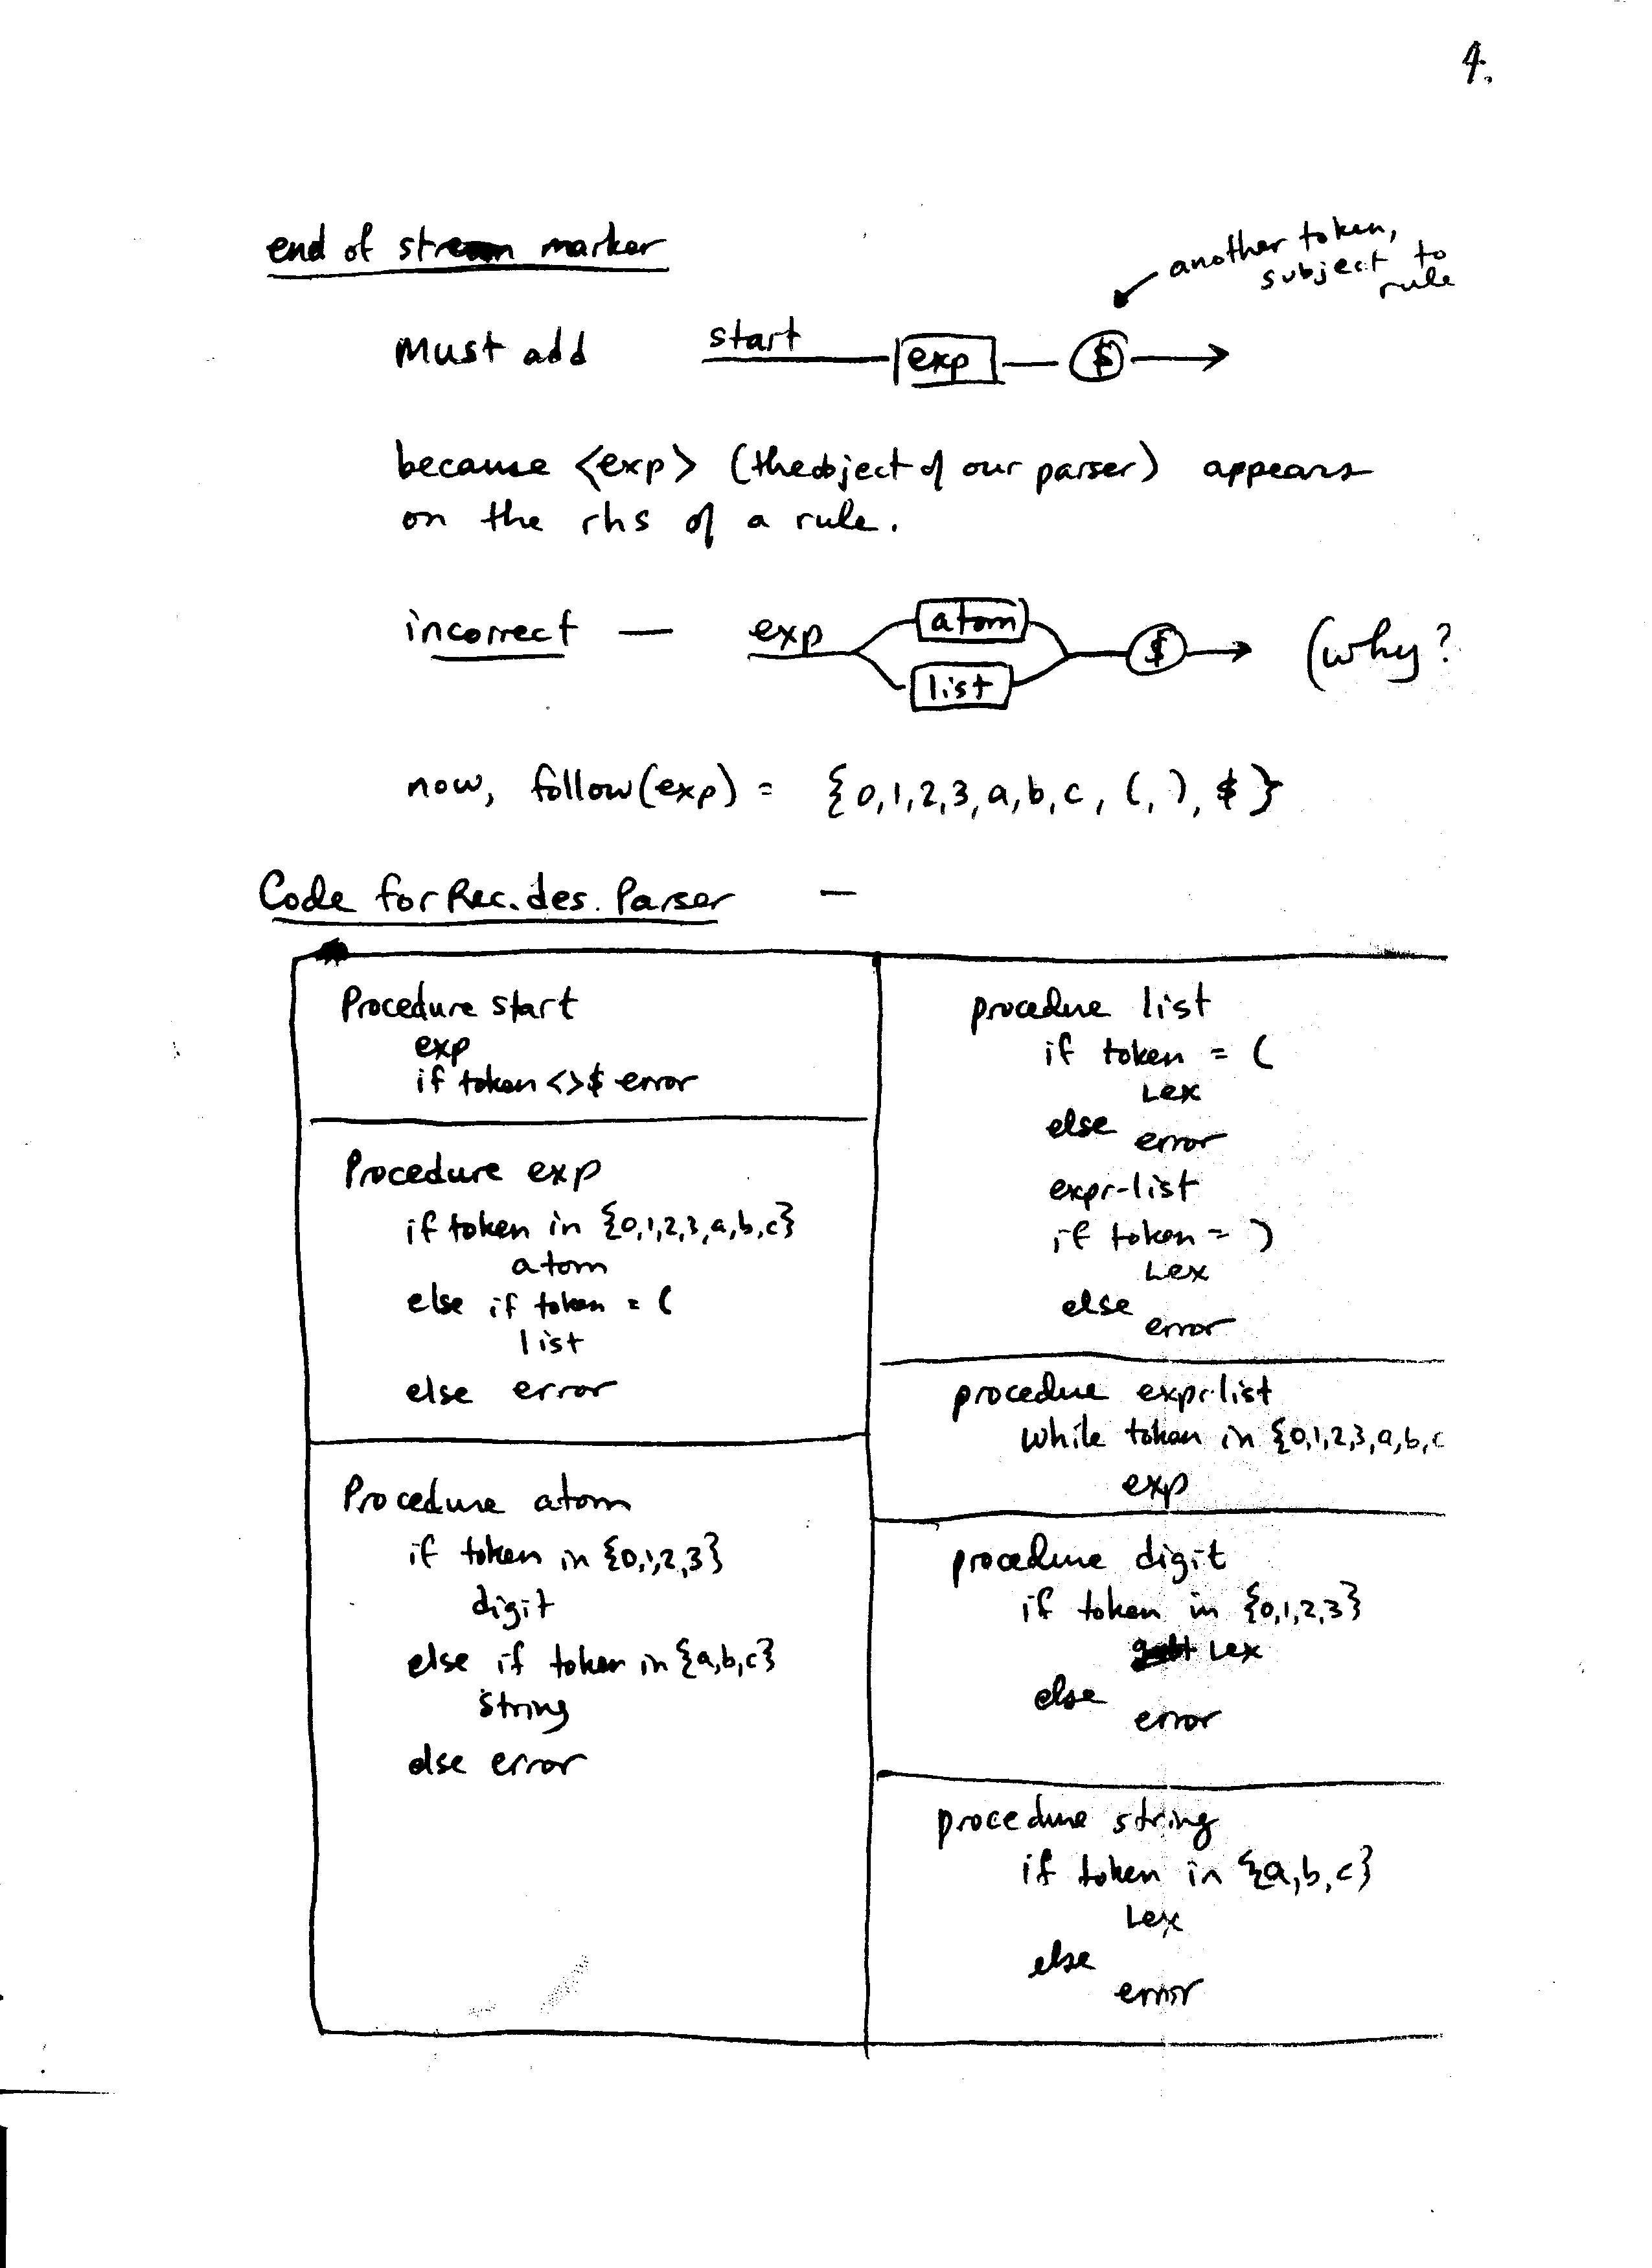 4.
end of stream marker
another token,
subject to
rule
Must add start exp $
because <exp> (the object of our parser) appears
on the rhs of a rule.
incorrect — exp atom list $ (why?
now, follow(exp) = {0,1,2,3,a,b,c,(,),$}
Code for Rec. des. Parser —
Procedure start
exp
if token <>$ error
Procedure exp
if token in {0,1,2,3,a,b,c}
atom
else if token = (
list
else error
Procedure atom
if token in {0,1,2,3}
digit
else if token in {a,b,c}
string
else error
procedure list
if token = (
Lex
else
error
expr-list
if token = )
Lex
else
error
procedure expr-list
while token in {0,1,2,3,a,b,c
exp
procedure digit
if token in {0,1,2,3}
Lex
else
error
procedure string
if token in {a,b,c}
Lex
else
error